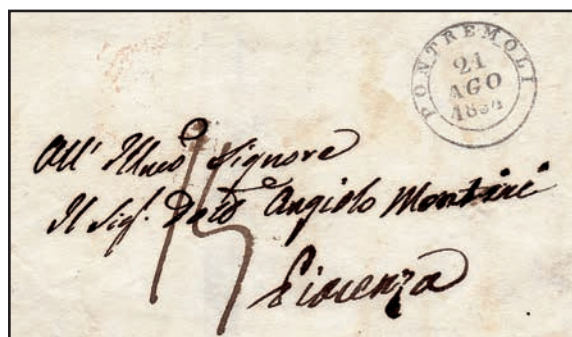 PONTREMOLI
21
AGO
1854
All' Illmo Signore
Il Sig. Angiolo
Piacenza